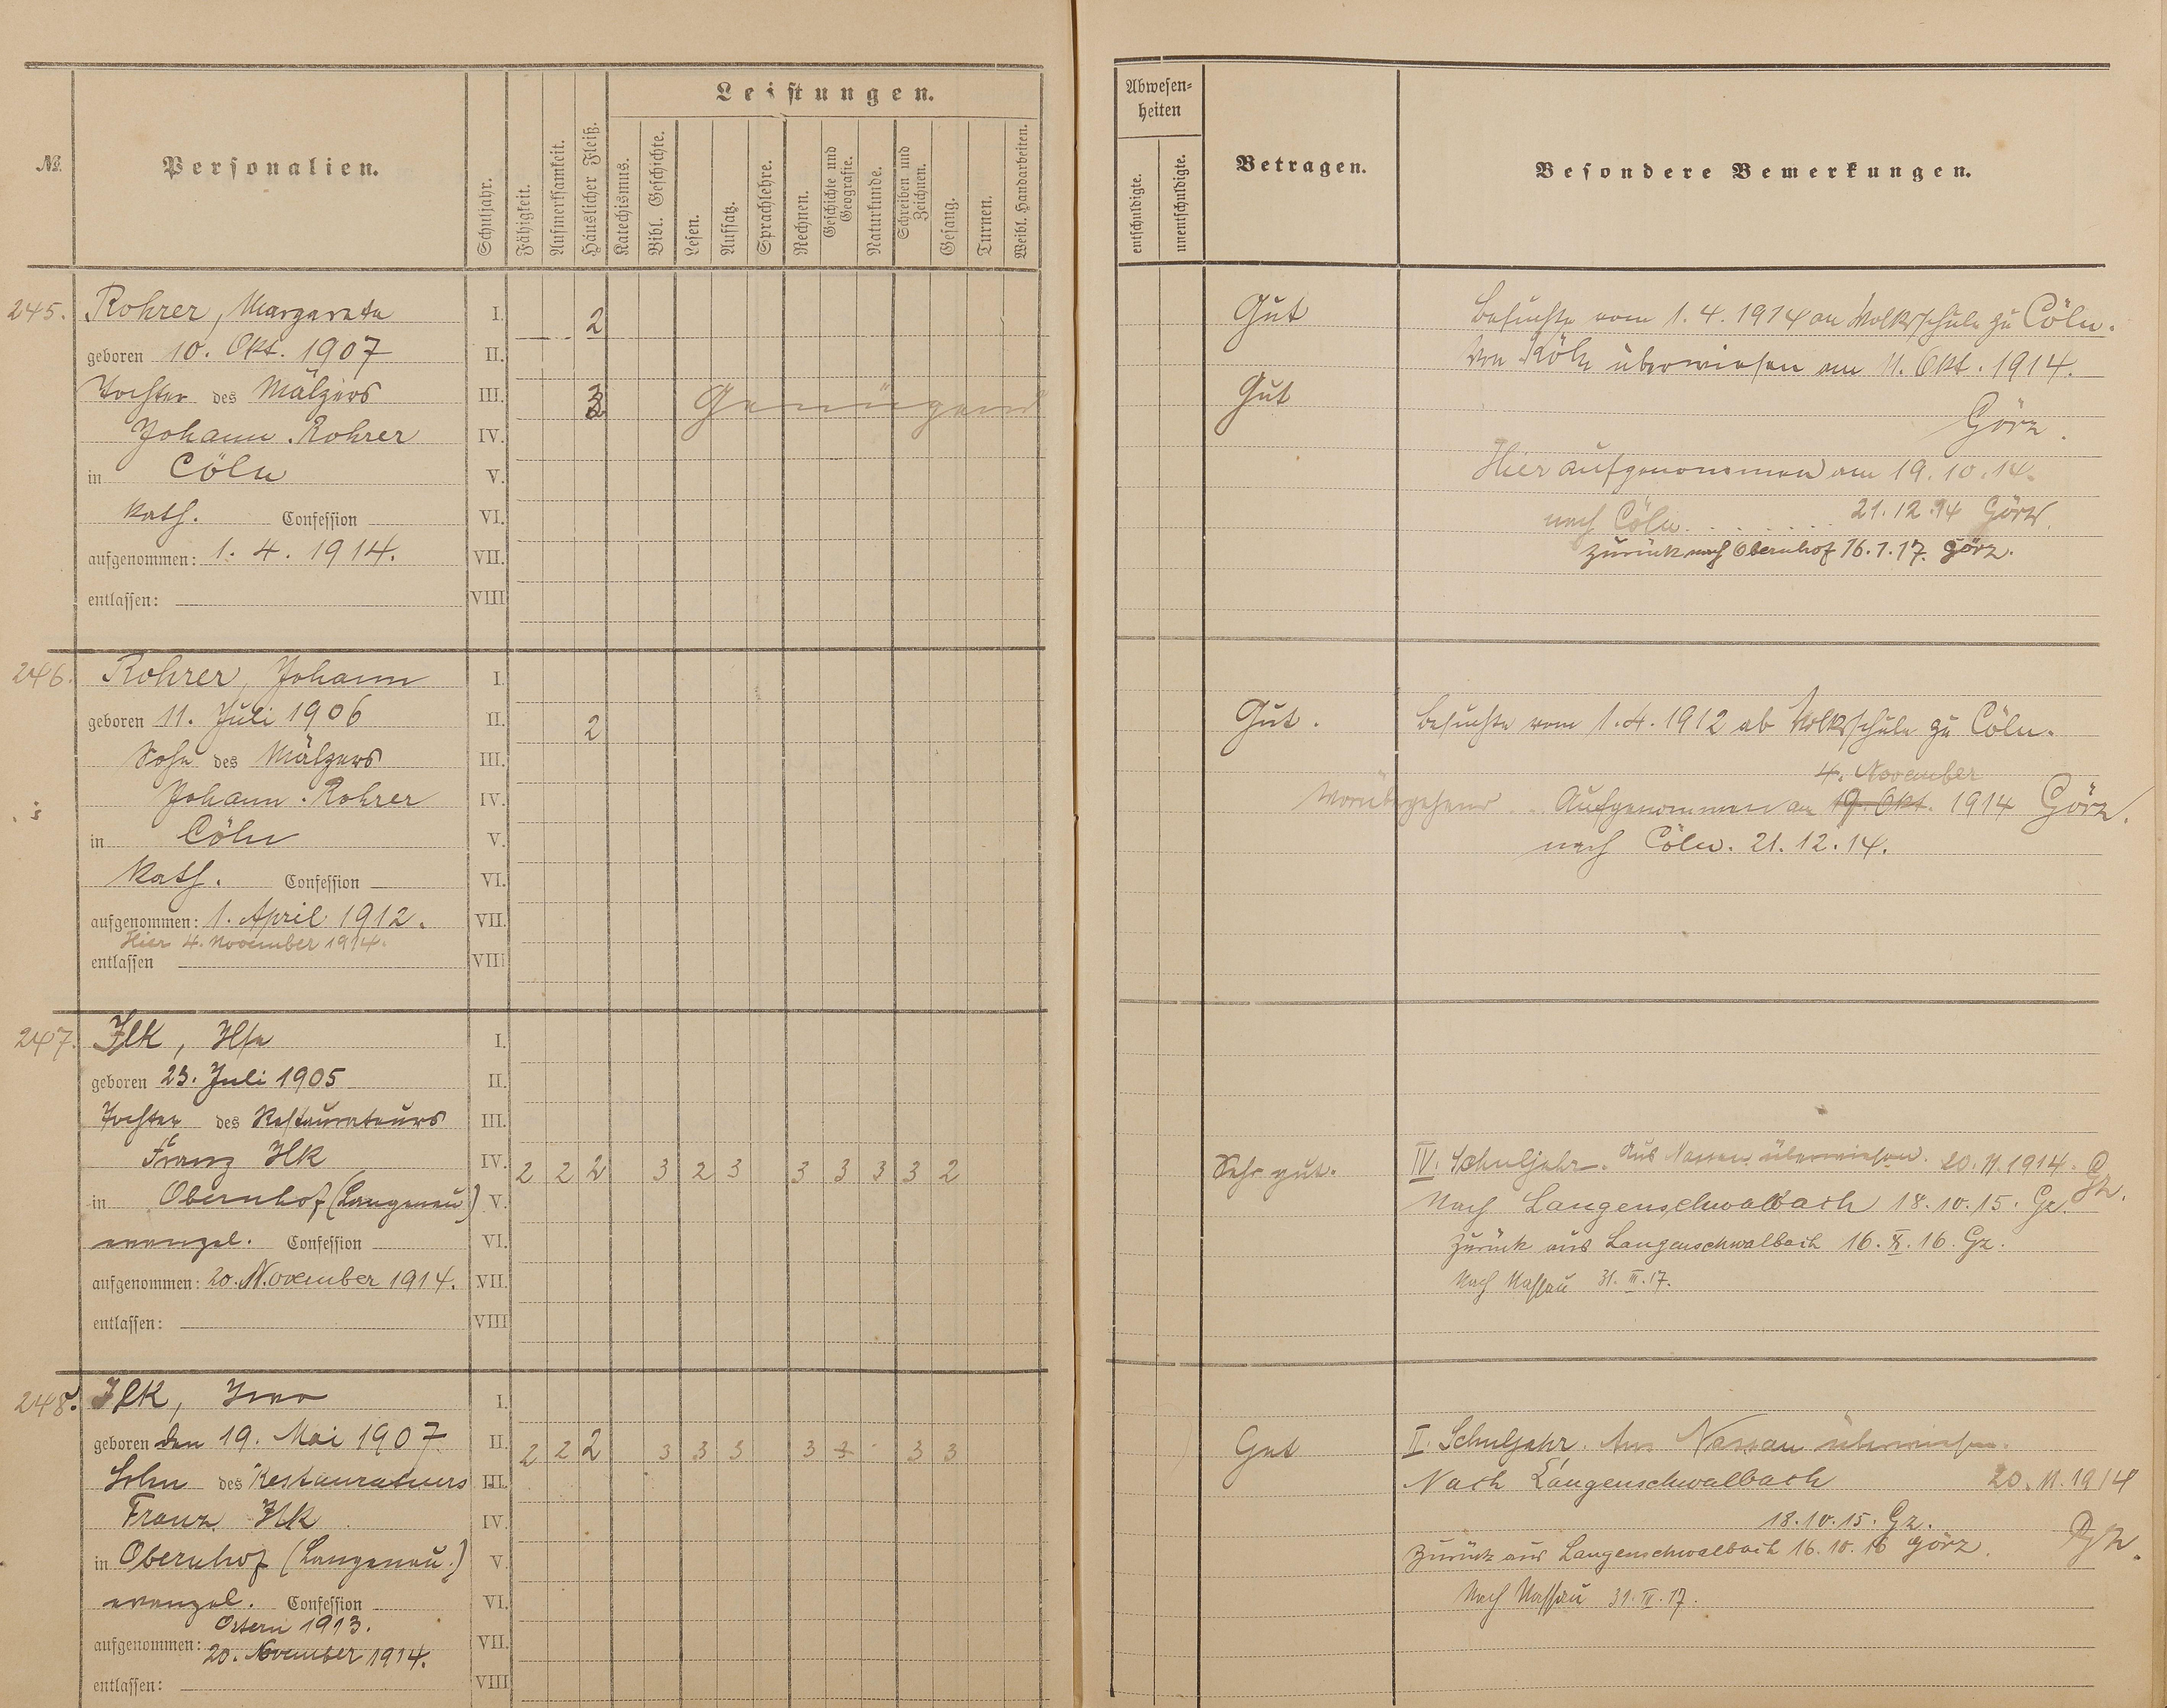 № Personalien. Schuljahr. Fähigkeit. Aufmerksamkeit. Häuslicher Fleiß. Leistungen.
Katechismus. Bibl. Geschichte. Lesen. Aufsatz. Sprachlehre. Rechnen. Geschichte und Geografie. Naturkunde. Schreiben und Zeichnen. Gesang. Turnen. Weibl. Handarbeiten.
Abwesen-
heiten
entschuldigte. unentschuldigte.
Betragen. Besondere Bemerkungen.
245. Rohrer, Margareta I. 2 Gut
Besuchte vom 1. 4. 1914 an Volksschule zu Cöln.
geboren 10. Okt. 1907 II.
Von Köln überwiesen am 11. Okt. 1914.
Tochter des Mälzers III. 3 Genügend Gut
Görz.
Johann Rohrer IV.
Hier aufgenommen am 19. 10. 14.
in Cöln V.
nach Cöln. . . . . . . 21. 12. 14 Görz.
kath. Confession VI.
zurück nach Obernhof 16. 1. 17. Görz.
aufgenommen: 1. 4. 1914. VII.
entlassen: VIII
246. Rohrer, Johann I.
geboren 11. Juli 1906 II. 2 Gut. Besuchte vom 1. 4. 1912 ab Volksschule zu Cöln.
Sohn des Mälzers III.
4. November
Johann Rohrer IV. Vorübergehend .. Aufgenommen am 19. Okt. 1914 Görz.
in Cöln V. nach Cöln. 21. 12. 14.
kath. Confession VI.
aufgenommen: 1. April 1912. VII.
Hier 4. November 1914.
entlassen VIII
247. Ilk, Ilse I.
geboren 23. Juli 1905 II.
Tochter des Restaurateurs III.
Franz Ilk IV. 2 2 2 3 2 3 3 3 3 3 2 Sehr gut. IV. Schuljahr. Aus Nassau überwiesen. 20. 11. 1914. Gz.
in Obernhof (Langenau) V. Nach Langenschwalbach 18. 10. 15. Gz.
evangel. Confession VI. Zurück aus Langenschwalbach 16. X. 16. Gz.
aufgenommen: 20. November 1914. VII. Nach Nassau 31. III. 17.
entlassen: VIII
248. Ilk, Ivo I.
geboren den 19. Mai 1907 II. 2 2 2 3 3 3 3 3 3 3 Gut II. Schuljahr. Aus Nassau überwiesen.
Sohn des Restaurateurs III. Nach Langenschwalbach 20. 11. 1914
Franz Ilk IV. 18. 10. 15. Gz.
in Obernhof (Langenau.) V. Zurück aus Langenschwalbach 16. 10. 16 Görz.
evangel. Confession VI. Nach Nassau 31. III. 17.
Ostern 1913.
aufgenommen: VII.
20. November 1914.
entlassen: VIII